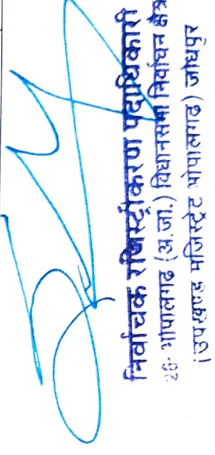 निर्वाचक रजिस्ट्रीकरण पदाधिकारी
126- भोपालगढ (अ.जा.) विधानसभा निर्वाचन क्षेत्र
(उपखण्ड मजिस्ट्रेट भोपालगढ) जोधपुर